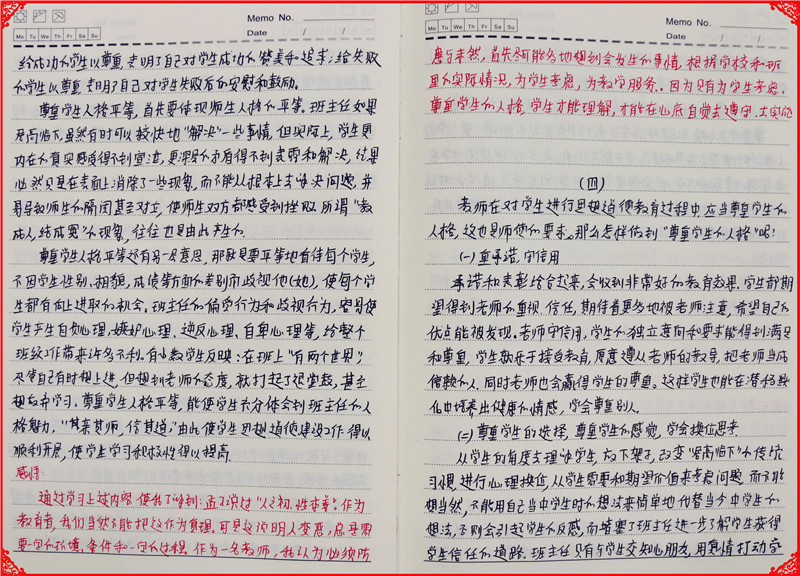 Memo No.
Mo Tu We Th Fr Sa Su
Date / /
给成功的学生以尊重,表明了自己对学生成功的赞美和追求;给失败
的学生以尊重,表明了自己对学生失败后的安慰和鼓励。
尊重学生人格平等,首先要体现师生人格的平等。班主任如果
居高临下,虽然有时可以较快地“解决”一些事情,但实际上,学生更
内在的真实感受得不到宣泄,更深层的矛盾得不到表露和解决,结果
必然只是在表面上消除了一些现象,而不能从根本上去解决问题,并
易导致师生的隔阂甚至对立,使师生双方都感受到挫败,所谓“教
成人,结成冤”的现象,往往也是由此产生的.
尊重学生人格平等还有另一层意思,那就是要平等地看待每个学生,
不因学生性别、相貌,成绩等方面的差别而歧视他(她),使每个学
生都有向上进取的机会。班主任的偏爱行为和歧视行为,容易使
学生产生自傲心理、嫉妒心理、逆反心理、自卑心理等,给整个
班级工作带来许多不利.有少数学生反映:在班上“有两个世界”,
尽管自己有时想上进,但想到老师的态度,就打起了退堂鼓,甚至
想放弃学习.尊重学生人格平等,能使学生充分体会到班主任的人
格魅力,“其亲其师,信其道,”由此使学生思想道德建设工作得以
顺利开展,使学生学习积极性得以提高.
感悟:
通过学习上述内容,使我了解到:孟子说过“人之初,性本善”,作为
教育者,我们当然不能把这作为真理,可是这说明人变恶,总是需
要一定的环境、条件和一定的过程.作为一名教师,我认为必须防
Memo No.
Mo Tu We Th Fr Sa Su
Date / /
患于未然,首先尽可能多地想到会发生的事情,根据学校和班
里的实际情况,为学生考虑,为教学服务.因为只有为学生考虑.
尊重学生的人格,学生才能理解,才能在心底自觉去遵守、去实施
(四)
老师在对学生进行思想道德教育过程中应当尊重学生的
人格,这也是师德的要求。那么怎样做到“尊重学生的人格”呢?
(一)重承诺,守信用
承诺和表彰结合起来,会收到非常好的教育效果.学生都期
望得到老师的重视、信任,期待着更多地被老师注意,希望自己的
优点能被发现。老师守信用,学生的独立意向和要求能得到满足
和尊重,学生就乐于接受教育,愿意遵从老师的教导,把老师当成
信赖的人.同时老师也会赢得学生的尊重。这样学生也能在潜移默
化中培养出健康的情感,学会尊重别人.
(二)尊重学生的选择,尊重学生的感觉,学会换位思考
从学生的角度去理解学生,放下架子,改变“居高临下”的传统
习惯,进行心理换位,从学生需要和期望价值来考虑问题,而不能
想当然,不能用自己当中学生时的想法来简单地代替当今中学生的
想法,否则会引起学生的反感,而堵塞了班主任进一步了解学生,获得
学生信任的道路.班主任只有与学生交知心朋友,用真情打动学